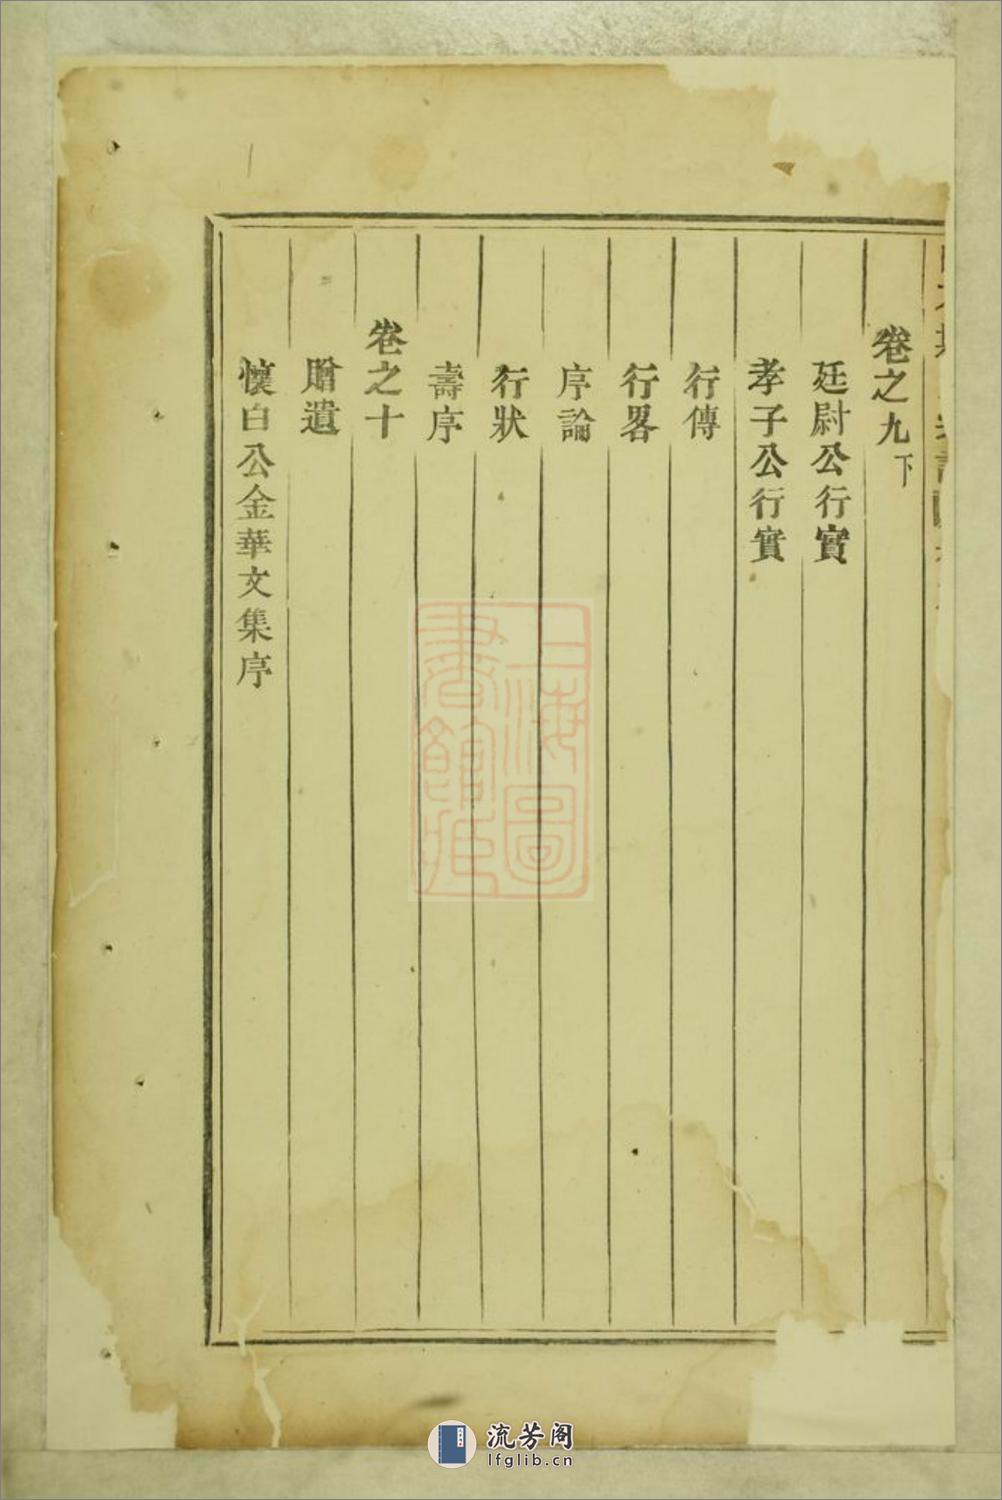 卷之九下
廷尉公行實
孝子公行實
行傳
行畧
序論
行狀
壽序
卷之十
贈遺
懷白公金華文集序
上海圖
書館藏
流芳阁
lfglib.cn